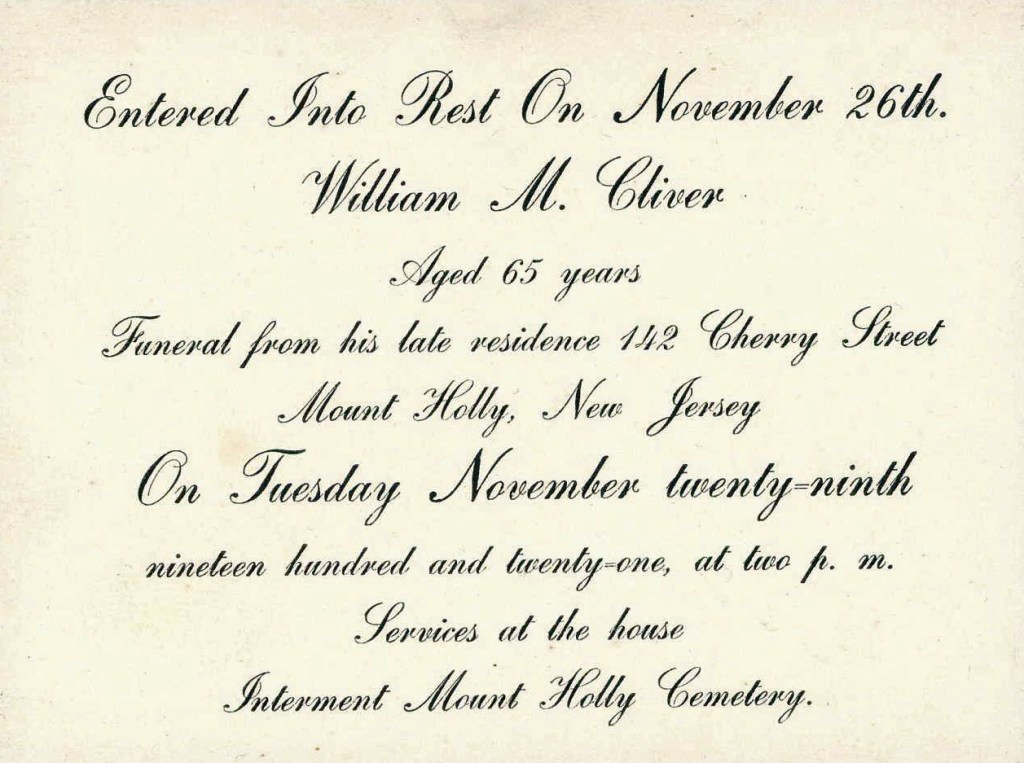 Entered Into Rest On November 26th.
William M. Cliver
Aged 65 years
Funeral from his late residence 142 Cherry Street
Mount Holly, New Jersey
On Tuesday November twenty=ninth
nineteen hundred and twenty=one, at two p. m.
Services at the house
Interment Mount Holly Cemetery.